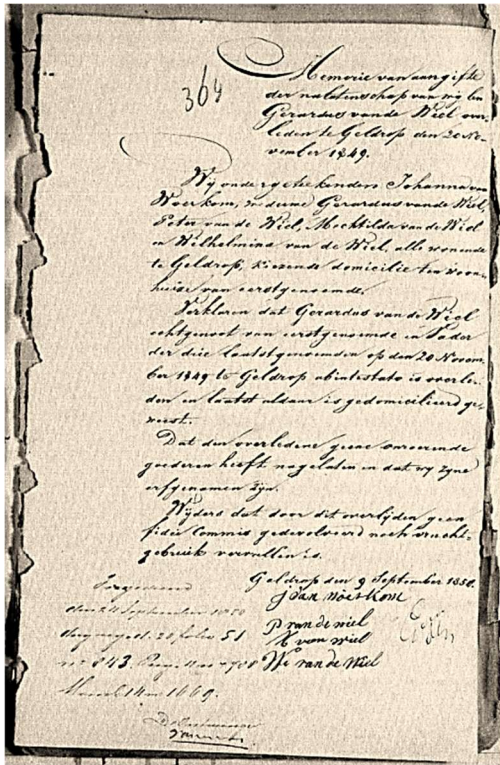 364
Memorie van aangifte
der nalatenschap van wijlen
Gerardus van de Wiel over-
leden te Geldrop den 20 No-
vember 1849.
Wij ondergetekenden Johanna van
Woerkom, Gerardus van de Wiel,
Peter van de Wiel, Mechtilda van de Wiel
en Wilhelmina van de Wiel, alle wonende
te Geldrop, kiezende domicilie ten woon-
huize van eerstgenoemde.
Verklaren dat Gerardus van de Wiel
echtgenoot van eerstgenoemde en Vader
der drie laatstgenoemden op den 20 Novem-
ber 1849 te Geldrop abintestato is overle-
den en laatst aldaar is gedomicilieerd ge-
weest.
Dat den overledene geene onroerende
goederen heeft nagelaten en dat wij zijne
erfgenamen zijn.
Wijders dat door dit overlijden geen
fidei Commis gedevolveerd noch vrucht-
gebruik vervallen is.
Geldrop den 9 September 1850.
J van Woerkom
P van de wiel
M van wiel
W van de Wiel
den 24 September 1850
51
843